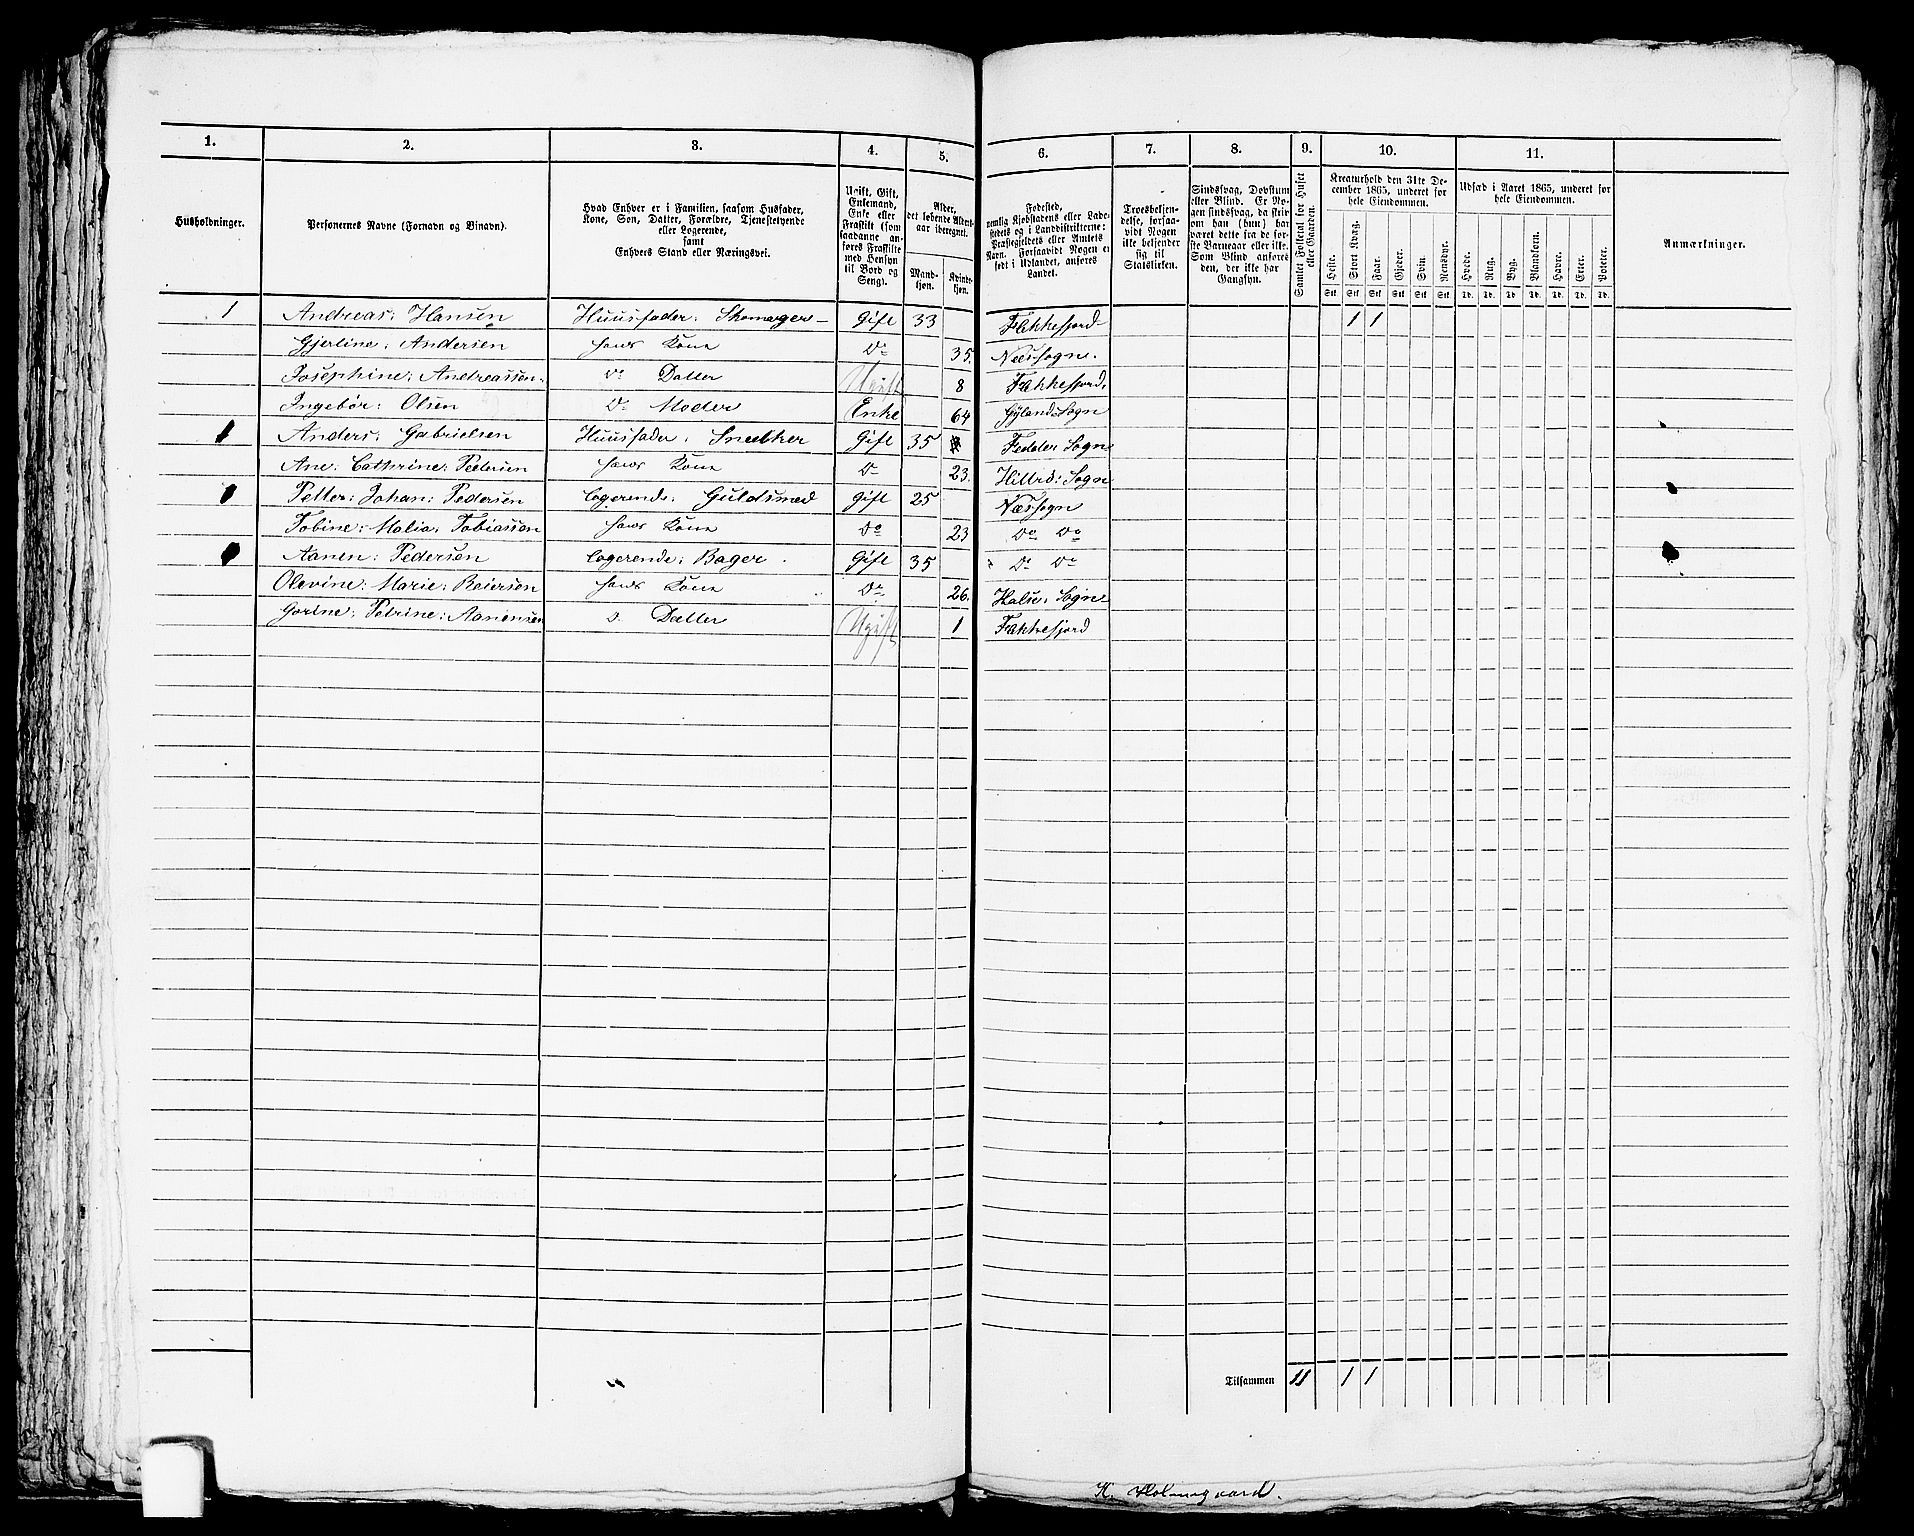 1. 2. 3. 4. 5. 6. 7. 8. 9. 10. 11.
Husholdninger.
Personernes Navne (Fornavn og Binavn).
Hvad Enhver er i Familien, saasom Husfader,
Kone, Søn, Datter, Forældre, Tjenestetyende
eller Logerende,
samt
Enhvers Stand eller Næringsvei.
Ugift, Gift,
Enkemand,
Enke eller
Fraskilt (som
saadanne an-
føres Fraskilte
med Hensyn
til Bord og
Seng).
Alder,
det løbende Alders-
aar iberegnet.
Mand-
kjøn.
Kvinde-
kjøn.
Fødested,
nemlig Kjøbstadens eller Lade-
stedets og i Landdistrikterne:
Præstegjeldets eller Amtets
Navn. Forsaavidt Nogen er
født i Udlandet, anføres
Landet.
Troesbekjen-
delse, forsaa-
vidt Nogen
ikke bekjender
sig til
Statskirken.
Sindssvag, Døvstum
eller Blind. Er No-
gen sindssvag, da skriv
om han (hun) har
været dette fra de før-
ste Barneaar eller ikke.
Som Blind anføres
den, der ikke har
Gangsyn.
Samlet Folketal for Huset
eller Gaarden.
Kreaturhold den 31te De-
cember 1865, underet for
hele Eiendommen.
Heste. Stort Kvæg. Faar. Gjeder. Svin. Rensdyr.
Stk Stk Stk Stk Stk Stk
Udsæd i Aaret 1865, underet for
hele Eiendommen.
Hvede. Rug. Byg. Blandkorn. Havre. Erter. Poteter.
Td. Td. Td. Td. Td. Td. Td.
Anmærkninger.
1 Andreas: Hansen Huusfader: Skomager Gift 33 Flekkefjord 1 1
Gjerline: Andersen hans Kone Do 35. Næssogn.
Josephine: Andreassen Do Datter Ugift 8 Flekkefjord.
Ingebør: Olsen Do Moder Enke 64 Gyland Sogn
1 Anders: Gabrielsen Huusfader: Snedker Gift 35 Fedder Sogn
Ane: Cathrine: Pedersen hans Kone Do 23. Sogn
Petter: Johan: Pedersen Logerende: Guldsmed Gift 25 Næssogn
Tobine: Malia: Tobiassen hans Kone Do 23 Do Do
Aanen: Pedersen Logerende: Bager. Gift 35 Do Do
Olevine: Marie: Reiersen hans Kone Do 26. Halse: Sogn
Gorine: Petrine: Aanensen D. Datter Ugift 1 Flekkefjord
Tilsammen 11 1 1
H. Holmegaard.